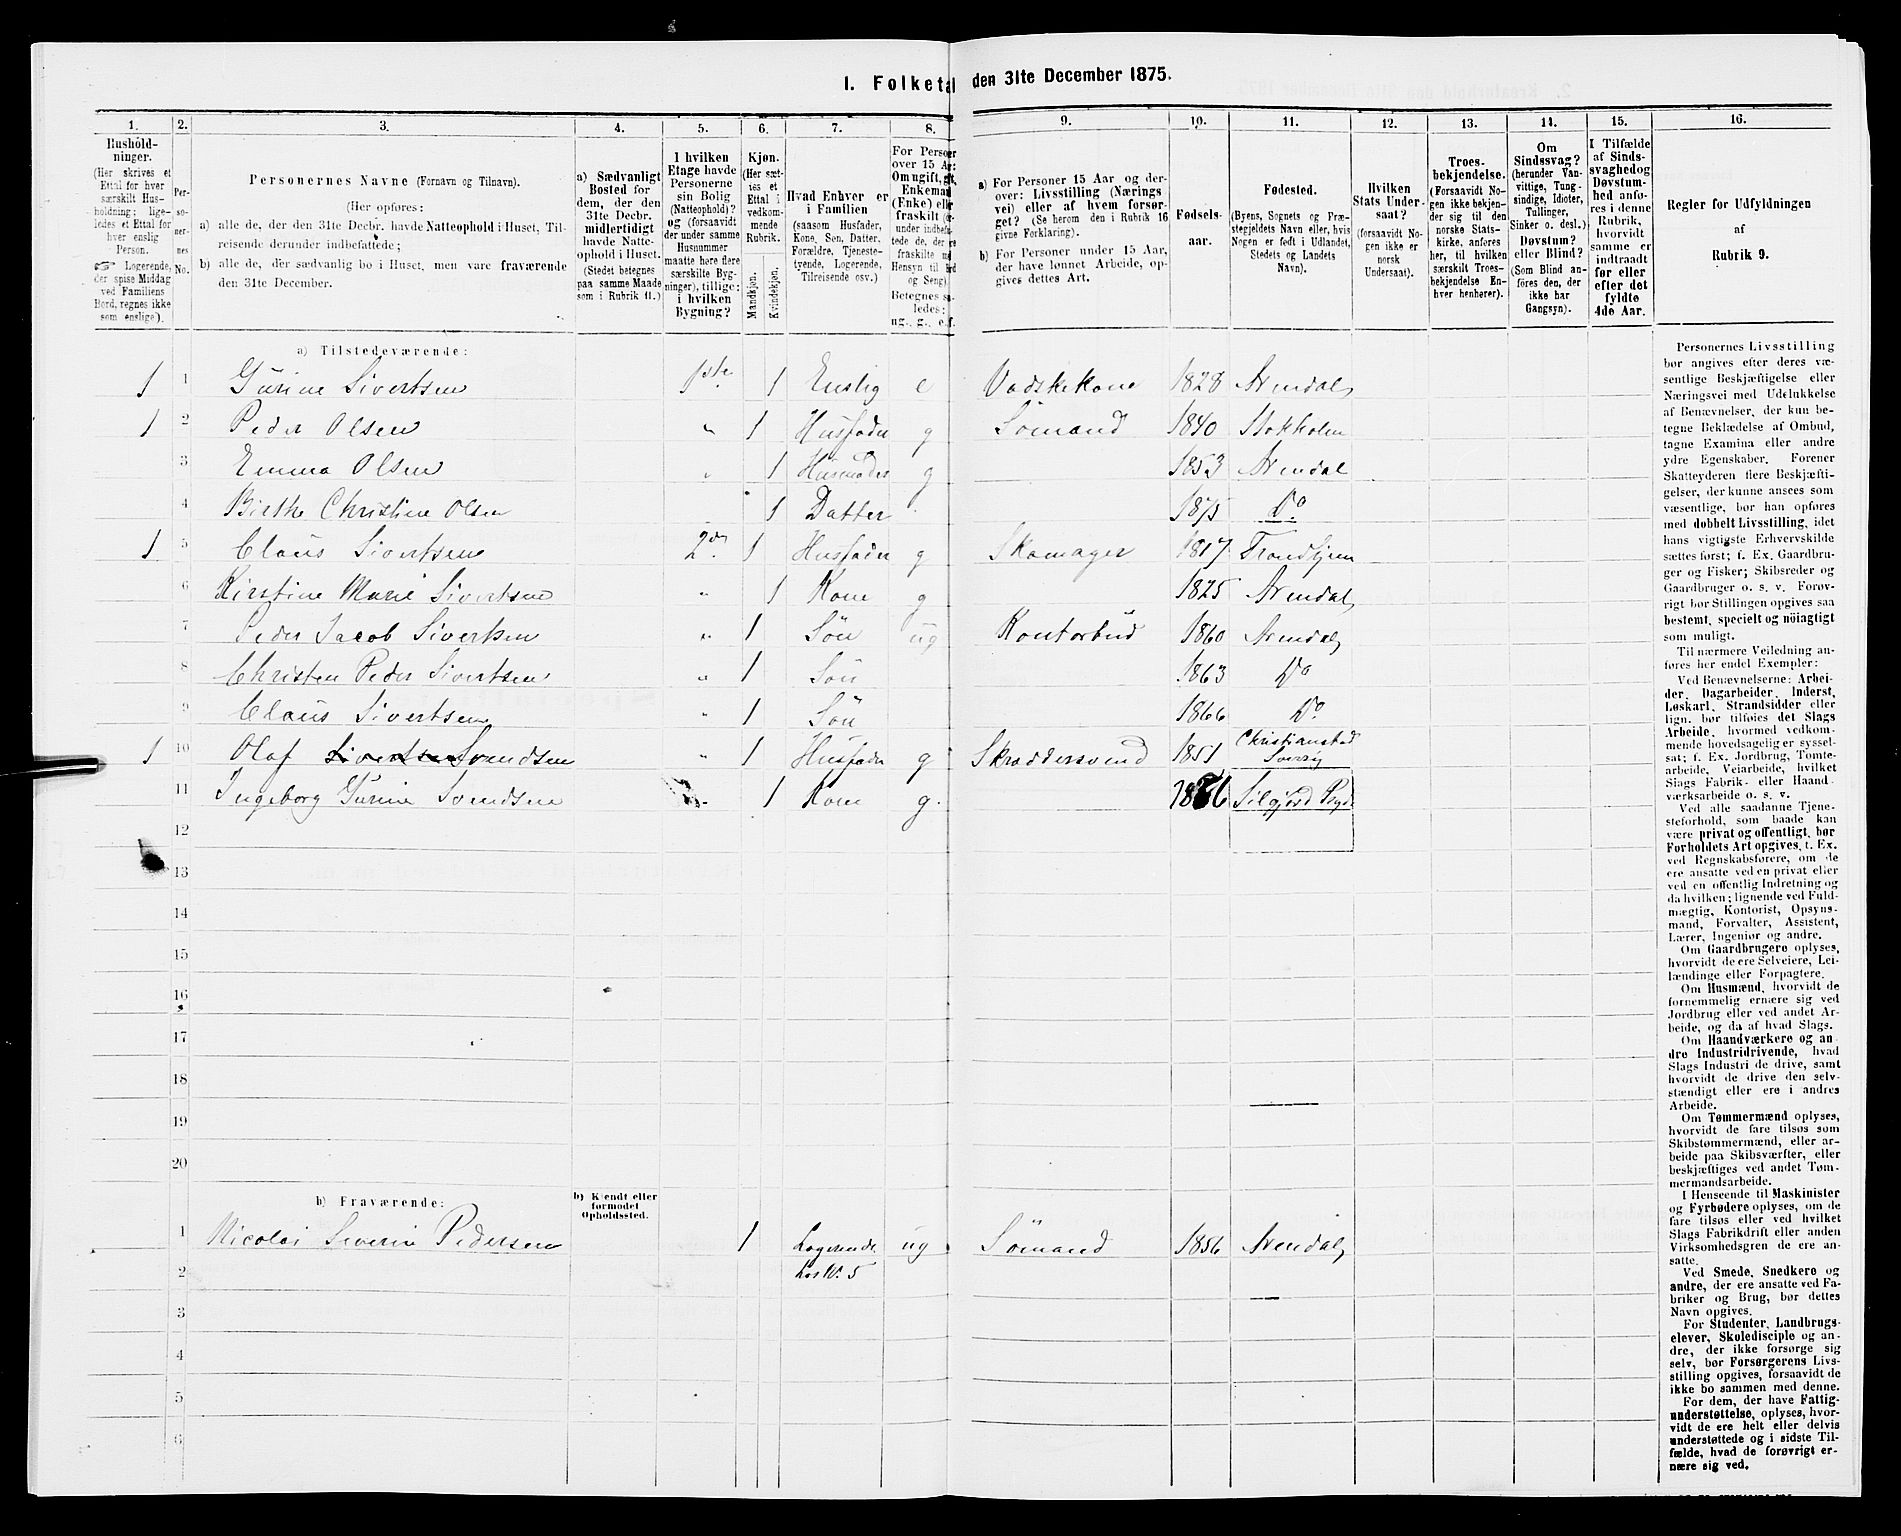 1. Folketal den 31te December 1875.
1. 2. 3. 4. 5. 6. 7. 8. 9. 10. 11. 12. 13. 14. 15. 16.
Hushold-
ninger.
(Her skrives et
Ettal for hver
særskilt Hus-
holdning; lige-
ledes et Ettal for
hver enslig
Person.
☞ Logerende,
der spise Middag
ved Familiens
Bord, regnes ikke
som enslige).
Per-
so-
ner-
nes
No.
Personernes Navne (Fornavn og Tilnavn).
(Her opføres:
a) alle de, der den 31te Decbr. havde Natteophold i Huset, Til-
reisende derunder indbefattede;
b) alle de, der sædvanlig bo i Huset, men vare fraværende
den 31te December.
a) Sædvanligt
Bosted for
dem, der den
31te Decbr.
midlertidigt
havde Natte-
ophold i Huset.
(Stedet betegnes
paa samme Maade
som i Rubrik 11.)
I hvilken
Etage havde
Personerne
sin Bolig
(Natteophold)?
og (forsaavidt
der under samme
Husnummer
maatte høre flere
særskilte Byg-
ninger), tillige:
i hvilken
Bygning?
Kjøn.
(Her sæt-
tes et
Ettal i
vedkom-
mende
Rubrik.
Mandkjøn.
Kvindekjøn.
Hvad Enhver er
i Familien
(saasom Husfader,
Kone, Søn, Datter,
Forældre, Tjeneste-
tyende, Logerende,
Tilreisende osv.)
For Personer
over 15 Aar:
Om ugift, gift,
Enkemand
(Enke) eller
fraskilt
Betegnes sa-
ledes:
ug., g., e, f.
a) For Personer 15 Aar og der-
over: Livsstilling (Nærings
vei) eller af hvem forsør-
get? (Se herom den i Rubrik 16
givne Forklaring).
b) For Personer under 15 Aar,
der have lønnet Arbeide, op-
gives dettes Art.
Fødsels-
aar.
Fødested.
(Byens, Sognets og Præ-
stegjeldets Navn eller, hvis
Nogen er født i Udlandet,
Stedets og Landets
Navn).
Hvilken
Stats Under-
saat?
(forsaavidt No-
gen ikke er
norsk
Undersaat).
Troes-
bekjendelse.
(Forsaavidt No-
gen ikke bekjen-
der sig til den
norske Stats-
kirke, anføres
her, til hvilken
særskilt Troes-
bekjendelse En-
hver henhører).
Om
Sindssvag?
(herunder Van-
vittige, Tung-
sindige, Idioter,
Tullinger,
Sinker o. desl.)
Døvstum?
eller Blind?
(Som Blind an-
føres den, der
ikke har
Gangsyn).
I Tilfælde
af Sinds-
svaghed og
Døvstum-
hed anfø-
res i denne
Rubrik,
hvorvidt
samme er
indtraadt
før eller
efter det
fyldte
4de Aar.
Regler for Udfyldningen
af
Rubrik 9.
a) Tilstedeværende:
1 1 Gurine Sivertsen 1ste 1 Enslig e Vadskekone 1828 Arendal
1 2 Peder Olsen " 1 Husfader g Sömand 1840 Stokholm
3 Emma Olsen " 1 Husmoder g 1853 Arendal
4 Birthe Christine Olsen 1 Datter 1875 Do
1 5 Claus Sivertsen 2den 1 Husfader g Skomager 1817 Trondhjem
6 Kirstine Marie Sivertsen " 1 Kone g 1825 Arendal
7 Peder Jacob Sivertsen " 1 Sön ug Kontorbud 1860 Arendal
8 Christen Peder Sivertsen " 1 Sön 1863 Do
9 Claus Sivertsen " 1 Sön 1866 Do
1 10 Olaf Sivertsen Svendsen " 1 Husfader g Skræddersvend 1851 Christianstad Sverig
11 Ingeborg Gurine Svendsen " 1 Kone g. Silgjord
12
13
14
15
16
17
18
19
20
b) Fraværende:
b) Kjendt eller
formodet
Opholdssted.
1 Nicolai Severin Pedersen 1 Logerende ug Sömand 1856 Arendal
2 hos No. 5
3
4
5
6
Personernes Livsstilling
bør angives efter deres væ-
sentlige Beskjæftigelse eller
Næringsvei med Udelukkelse
af Benævnelser, der kun be-
tegne Beklædelse af Ombud,
tagne Examina eller andre
ydre Egenskaber. Forener
Skatteyderen flere Beskjæfti-
gelser, der kunne ansees som
væsentlige, bør han opføres
med dobbelt Livsstilling, idet
hans vigtigste Erhvervskilde
sættes først; f. Ex. Gaardbru-
ger og Fisker; Skibsreder og
Gaardbruger o. s. v. Forøv-
rigt bør Stillingen opgives saa
bestemt, specielt og nøiagtigt
som muligt.
Til nærmere Veiledning an-
føres her endel Exempler:
Ved Benævnelserne: Arbei-
der, Dagarbeider, Inderst,
Løskarl, Strandsidder eller
lign. bør tilføies det Slags
Arbeide, hvormed vedkom-
mende hovedsagelig er syssel-
sat; f. Ex. Jordbrug, Tomte-
arbeide, Veiarbeide, hvilket
Slags Fabrik- eller Haand-
værksarbeide o. s. v.
Ved alle saadanne Tjene-
steforhold, som baade kan
være privat og offentligt, bør
Forholdets Art opgives, t. Ex.
ved Regnskabsførere, om de
ere ansatte ved en privat eller
ved en offentlig Indretning og
da hvilken; lignende ved Fuld-
mægtig, Kontorist, Opsyns-
mand, Forvalter, Assistent,
Lærer, Ingeniør og andre.
Om Gaardbrugere oplyses,
hvorvidt de ere Selveiere, Lei-
lændinge eller Forpagtere.
Om Husmænd, hvorvidt de
fornemmelig ernære sig ved
Jordbrug eller ved andet Ar-
beide, og da af hvad Slags.
Om Haandværkere og an-
dre Industridrivende, hvad
Slags Industri de drive, samt
hvorvidt de drive den selv-
stændigt eller ere i andres
Arbeide.
Om Tømmermænd oplyses,
hvorvidt de fare tilsøs som
Skibstømmermænd, eller ar-
beide paa Skibsværfter, eller
beskjæftiges ved andet Tøm-
mermandsarbeide.
I Henseende til Maskinister
og Fyrbødere oplyses, om de
fare tilsøs eller ved hvilket
Slags Fabrikdrift eller anden
Virksomhedsgren de ere an-
satte.
Ved Smede, Snedkere og
andre, der ere ansatte ved Fa-
briker og Brug, bør dettes
Navn opgives.
For Studenter, Landbrugs-
elever, Skoledisciple og an-
dre, der ikke forsørge sig
selv, bør Forsørgerens Livs-
stilling opgives, forsaavidt de
ikke bo sammen med denne.
For dem, der have Fattig-
understøttelse, oplyses, hvor-
vidt de ere helt eller delvis
understøttede og i sidste Til-
fælde, hvad de forøvrigt er-
nære sig ved.